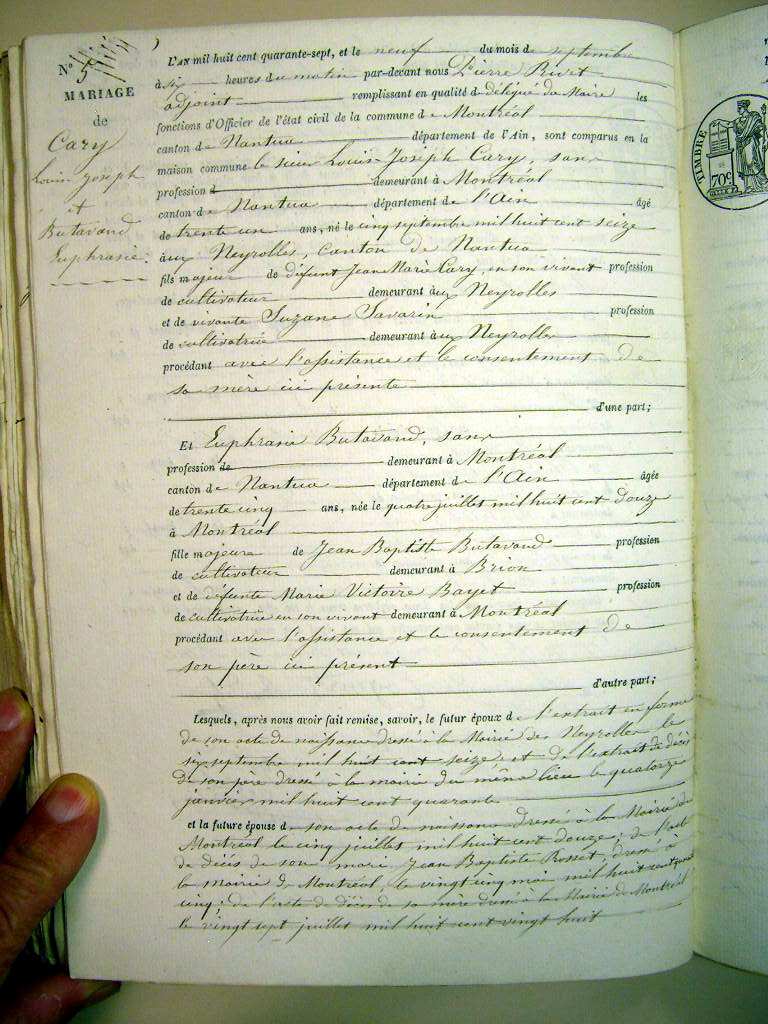 N° 5
MARIAGE
de
Cary
Louis Joseph
et
Butavand
Euphrasie.
L'AN mil huit cent quarante-sept, et le neuf du mois de septembre
à six heures du matin par-devant nous Pierre Rivet
adjoint remplissant en qualité d délégué du Maire les
fonctions d'Officier de l'état civil de la commune de Montréal
canton de Nantua département de l'Ain, sont comparus en la
maison commune le sieur Louis Joseph Cary, sans
profession d demeurant à Montréal
canton de Nantua département de l'Ain âgé
de trente un ans, né le cinq septembre mil huit cent seize
aux Neyrolles, canton de Nantua
fils majeur de défunt Jean Marie Cary, en son vivant profession
de cultivateur demeurant aux Neyrolles
et de vivante Suzane Savarin profession
de cultivatrice demeurant aux Neyrolles
procédant avec l'assistance et le consentement de
sa mère ici présente
d'une part;
Et Euphrasie Butavand, sans
profession de demeurant à Montréal
canton de Nantua département de l'Ain âgée
de trente cinq ans, née le quatre juillet mil huit cent douze
à Montréal
fille majeure de Jean Baptiste Butavand profession
de cultivateur demeurant à Brion
et de défunte Marie Victoire Bayet profession
de cultivatrice en son vivant demeurant à Montréal
procédant avec l'assistance et le consentement de
son père ici présent
d'autre part;
Lesquels, après nous avoir fait remise, savoir, le futur époux de l'extrait en forme
de son acte de naissance dressé à la Mairie des Neyrolles le
six septembre mil huit cent seize et de l'extrait de décès
de son père dressé à la mairie du même lieu le quatorze
janvier mil huit cent quarante
et la future épouse d son acte de naissance dressé à la Mairie de
Montréal le cinq juillet mil huit cent douze; de l'acte
de décès de son mari Jean Baptiste Rosset, dressé à
la mairie de Montréal, le vingt cinq mai mil huit cent quarante
cinq; de l'acte de décès de sa mère dressé à la Mairie de Montréal
le vingt sept juillet mil huit cent vingt huit
TIMBRE
70c